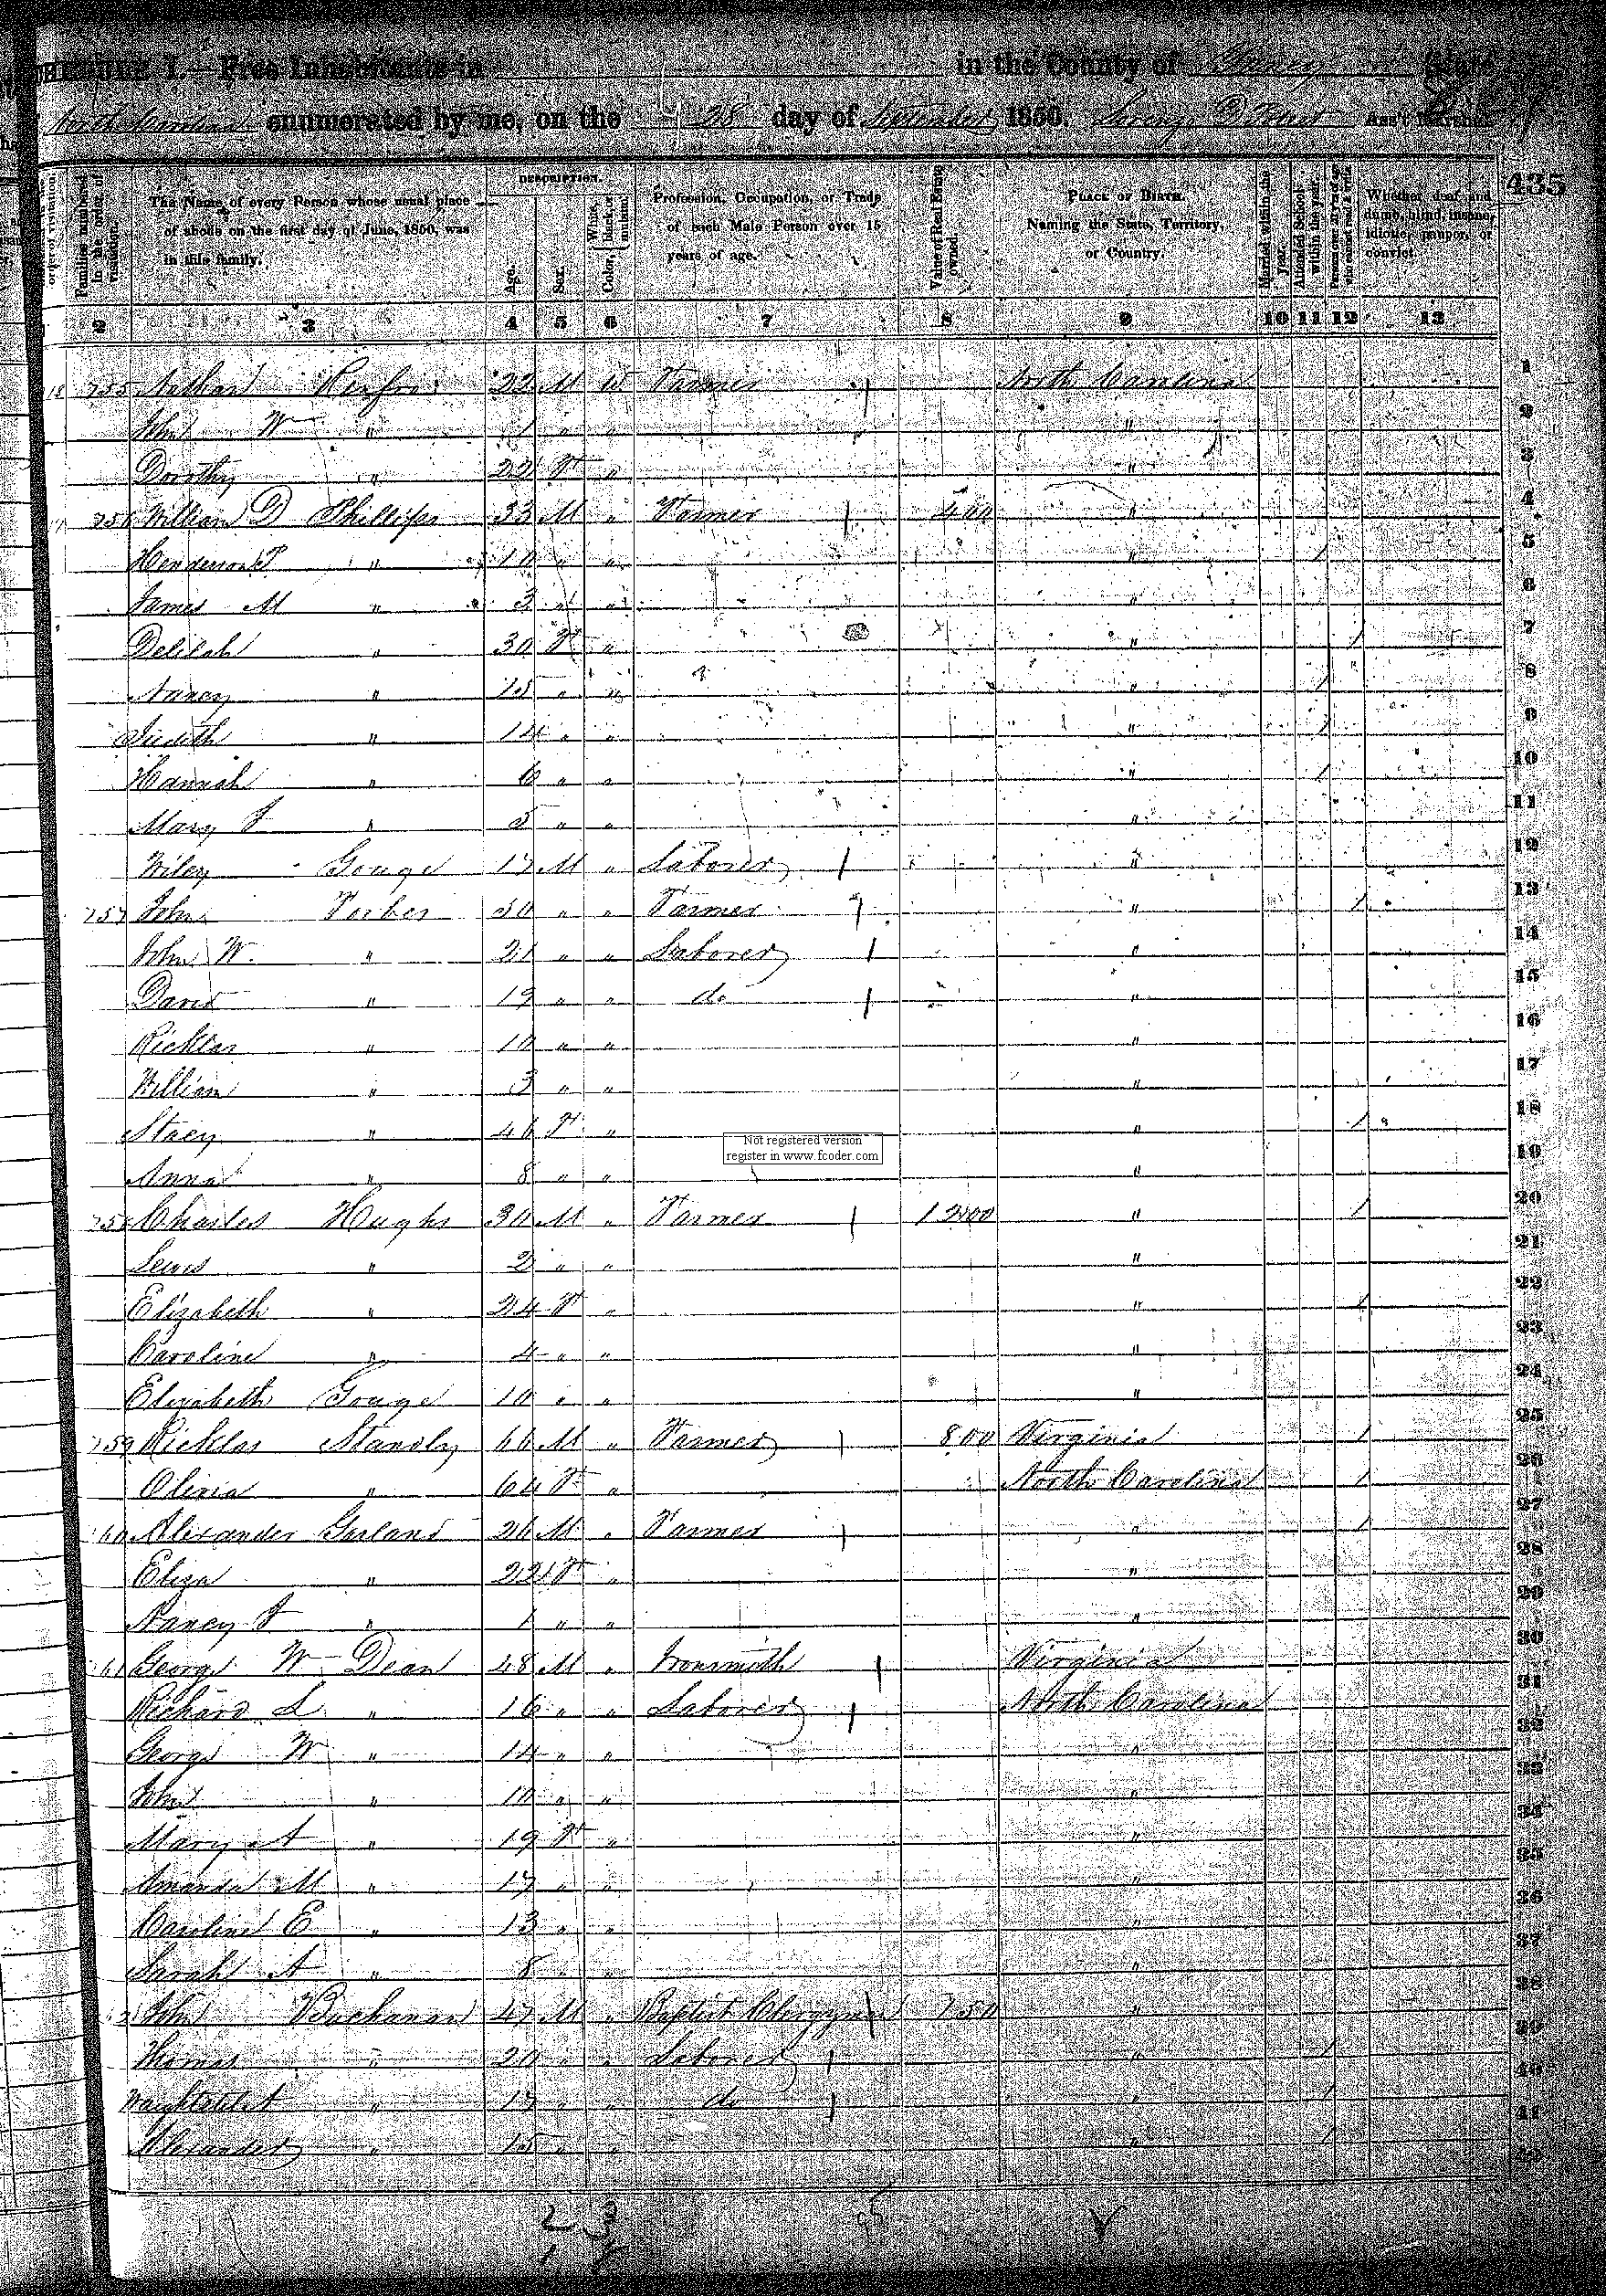 SCHEDULE I.—Free Inhabitants in in the County of Yancey State
North Carolina enumerated by me, on the 28 day of September 1850. Ass't Marshal
435
DESCRIPTION.
order of visitation
Families numbered in the order of visitation.
The Name of every Person whose usual place of abode on the first day of June, 1850, was in this family.
Age.
Sex.
Color, White, black, or mulatto.
Profession, Occupation, or Trade of each Male Person over 15 years of age.
Value of Real Estate owned.
PLACE OF BIRTH. Naming the State, Territory, or Country.
Married within the year.
Attended School within the year.
Persons over 20 y'rs of age who cannot read & write
Whether deaf and dumb, blind, insane, idiotic, pauper, or convict.
2 3 4 5 6 7 8 9 10 11 12 13
755 Nathan 22 M W Farmer North Carolina 1
John W " 1 " " " 2
Dorothy " 22 F " " 3
756 William D Phillips 33 M " Farmer 400 " 4
Henderson " 10 " " " 1 5
James M " 3 " " " 6
Delilah " 30 F " " 1 7
Nancy " 15 " " " 1 8
Judith " 14 " " " 1 9
Hannah " 6 " " " 1 10
Mary " 5 " " " 11
Wiley Gouge 17 M " Laborer " 12
757 John Forbes 50 " " Farmer " 1 13
John W. " 21 " " Laborer " 14
David " 19 " " do " 15
Ricklas " 10 " " " 16
William " 3 " " " 17
Stacy " 46 F " " 1 18
Not registered version
register in www.fcoder.com
Anna " 8 " " " 19
758 Charles Hughs 30 M " Farmer 1200 " 1 20
Lewis " 2 " " " 21
Elizabeth " 24 F " " 1 22
Caroline " 4 " " " 23
Elizabeth Gouge 10 " " " 24
759 Ricklas Standly 66 M " Farmer 800 Virginia 1 25
Olivia " 64 F " North Carolina 1 26
60 Alexander Garland 26 M " Farmer " 1 27
Eliza " 22 F " " 28
Nancy " 1 " " " 29
61 George W Dean 48 M " Ironsmith Virginia 30
Richard L " 16 " " Laborer North Carolina 31
George W " 14 " " " 32
John " 10 " " " 33
Mary A " 19 F " " 34
Amanda M " 17 " " " 35
Caroline E " 13 " " " 36
Sarah A " 8 " " " 37
John Buchanan 47 M " Baptist Clergyman 750 " 38
Thomas " 20 " " Laborer " 1 39
" 17 " " do " 1 40
Alexander " 15 " " " 1 41